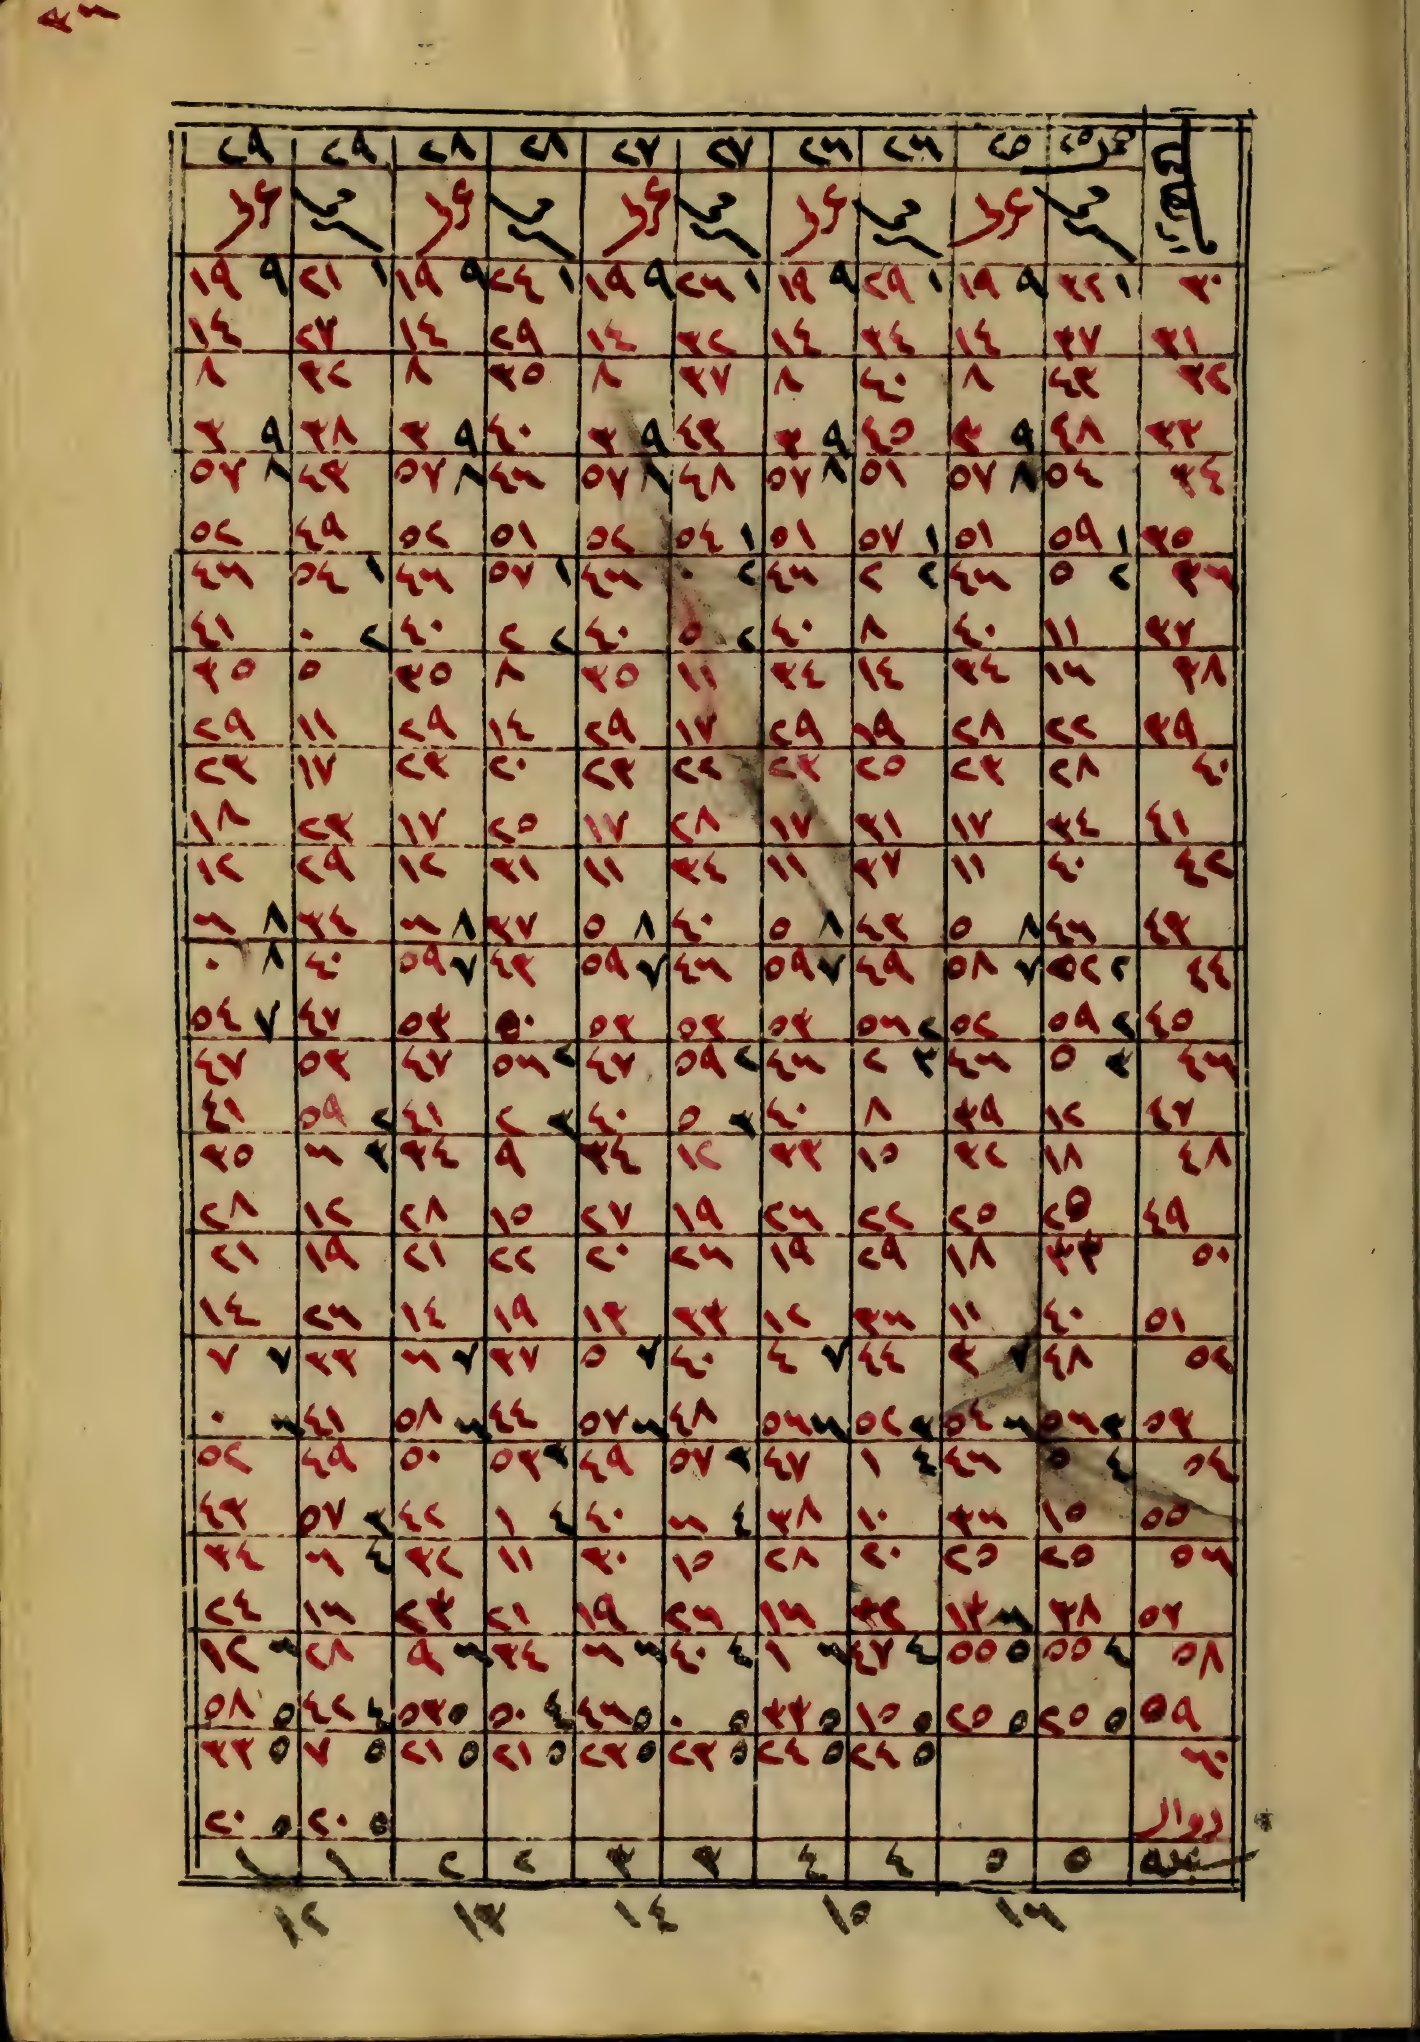 ٢٥ ٢٥ ٢٦ ٢٦ ٢٧ ٢٧ ٢٨ ٢٨ ٢٩ ٢٩
٣٠ ١ ٣٢ ٩ ١٩ ١ ٢٩ ٩ ١٩ ١ ٢٦ ٩ ١٩ ١ ٢٤ ٩ ١٩ ١ ٢١ ٩ ١٩
٣١ ٣٧ ١٤ ٣٤ ١٤ ٣٢ ١٤ ٢٩ ١٤ ٢٧ ١٤
٣٢ ٤٣ ٨ ٤٠ ٨ ٣٧ ٨ ٣٥ ٨ ٣٢ ٨
٣٣ ٤٨ ٩ ٣ ٤٥ ٩ ٣ ٤٣ ٩ ٣ ٤٠ ٩ ٣ ٣٨ ٩ ٣
٣٤ ٥٤ ٨ ٥٧ ٥١ ٨ ٥٧ ٤٨ ٨ ٥٧ ٤٦ ٨ ٥٧ ٤٣ ٨ ٥٧
٣٥ ١ ٥٩ ٥١ ١ ٥٧ ٥١ ١ ٥٤ ٥٢ ٥١ ٥٢ ٤٩ ٥٢
٣٦ ٢ ٥ ٤٦ ٢ ٢ ٤٦ ٢ ٠ ٤٦ ١ ٥٧ ٤٦ ١ ٥٤ ٤٦
٣٧ ١١ ٤٠ ٨ ٤٠ ٢ ٥ ٤٠ ٢ ٢ ٤٠ ٢ ٠ ٤١
٣٨ ١٦ ٣٤ ١٤ ٣٤ ١١ ٣٥ ٨ ٣٥ ٥ ٣٥
٣٩ ٢٢ ٢٨ ١٩ ٢٩ ١٧ ٢٩ ١٤ ٢٩ ١١ ٢٩
٤٠ ٢٨ ٢٣ ٢٥ ٢٣ ٢٢ ٢٣ ٢٠ ٢٣ ١٧ ٢٣
٤١ ٣٤ ١٧ ٣١ ١٧ ٢٨ ١٧ ٢٥ ١٧ ٢٣ ١٨
٤٢ ٤٠ ١١ ٣٧ ١١ ٣٤ ١١ ٣١ ١٢ ٢٩ ١٢
٤٣ ٤٦ ٨ ٥ ٤٣ ٨ ٥ ٤٠ ٨ ٥ ٣٧ ٨ ٦ ٣٤ ٨ ٦
٤٤ ٢ ٥٢ ٧ ٥٨ ٤٩ ٧ ٥٩ ٤٦ ٧ ٥٩ ٤٣ ٧ ٥٩ ٤٠ ٨ ٠
٤٥ ٢ ٥٩ ٥٢ ٢ ٥٦ ٥٣ ٥٣ ٥٣ ٥٠ ٥٣ ٤٧ ٧ ٥٤
٤٦ ٣ ٥ ٤٦ ٣ ٢ ٤٦ ٢ ٥٩ ٤٧ ٢ ٥٦ ٤٧ ٥٣ ٤٧
٤٧ ١٢ ٣٩ ٨ ٤٠ ٣ ٥ ٤٠ ٣ ٢ ٤١ ٢ ٥٩ ٤١
٤٨ ١٨ ٣٢ ١٥ ٣٣ ١٢ ٣٤ ٩ ٣٤ ٣ ٦ ٣٥
٤٩ ٢٥ ٢٥ ٢٢ ٢٦ ١٩ ٢٧ ١٥ ٢٨ ١٢ ٢٨
٥٠ ٣٣ ١٨ ٢٩ ١٩ ٢٦ ٢٠ ٢٢ ٢١ ١٩ ٢١
٥١ ٤٠ ١١ ٣٦ ١٢ ٣٣ ١٣ ١٩ ١٤ ٢٦ ١٤
٥٢ ٤٨ ٧ ٣ ٤٤ ٧ ٤ ٤٠ ٧ ٥ ٣٧ ٧ ٦ ٣٣ ٧ ٧
٥٣ ٣ ٥٦ ٦ ٥٤ ٣ ٥٢ ٦ ٥٦ ٤٨ ٦ ٥٧ ٤٤ ٦ ٥٨ ٤١ ٦ ٠
٥٤ ٤ ٥ ٤٦ ٤ ١ ٤٧ ٣ ٥٧ ٤٩ ٣ ٥٣ ٥٠ ٤٩ ٥٢
٥٥ ١٥ ٣٦ ١٠ ٣٨ ٤ ٦ ٤٠ ٤ ١ ٤٢ ٣ ٥٧ ٤٣
٥٦ ٢٥ ٢٥ ٢٠ ٢٨ ١٥ ٣٠ ١١ ٣٢ ٤ ٦ ٣٤
٥٧ ٣٨ ٦ ١٣ ٣٢ ١٦ ٢٦ ١٩ ٢١ ٢٣ ١٦ ٢٤
٥٨ ٤ ٥٥ ٥ ٥٥ ٤ ٤٧ ٦ ١ ٤ ٤٠ ٦ ٦ ٣٤ ٦ ٩ ٢٨ ٦ ١٢
٥٩ ٥ ٢٥ ٥ ٢٥ ٥ ١٥ ٥ ٣٣ ٥ ٠ ٥ ٤٦ ٤ ٥٠ ٥ ٥٣ ٤ ٤٢ ٥ ٥٨
٦٠ ٥ ٢٤ ٥ ٢٤ ٥ ٢٣ ٥ ٢٣ ٥ ٢١ ٥ ٢١ ٥ ٧ ٥ ٣٣
زوال ٥ ٢٠ ٥ ٢٠
٥ ٥ ٤ ٤ ٣ ٣ ٢ ٢ ١ ١
١٦ ١٥ ١٤ ١٣ ١٢